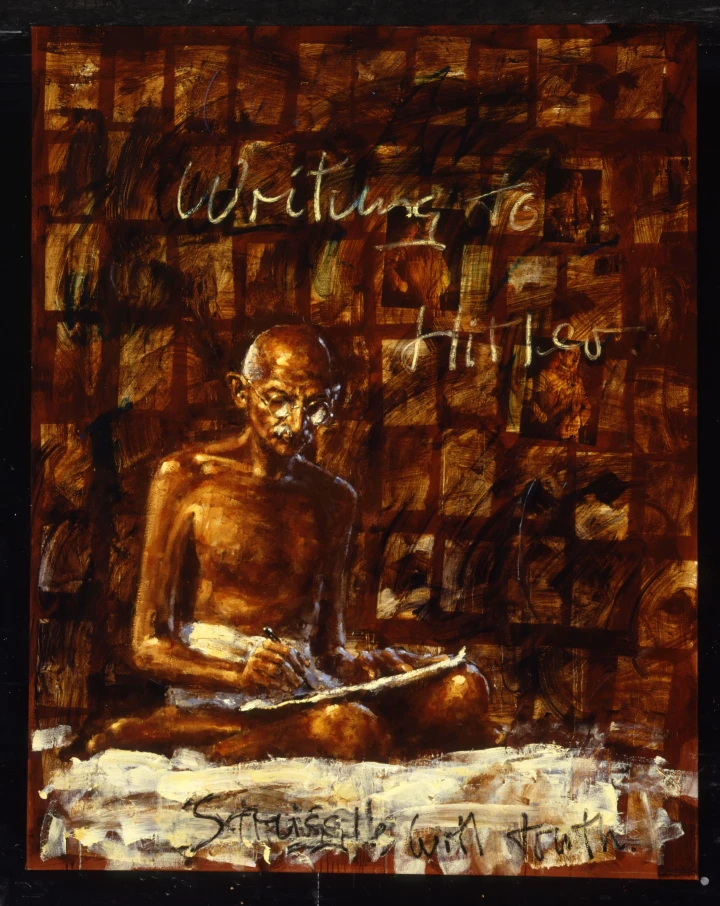 Writing to
Hitler.
Struggle with truth.